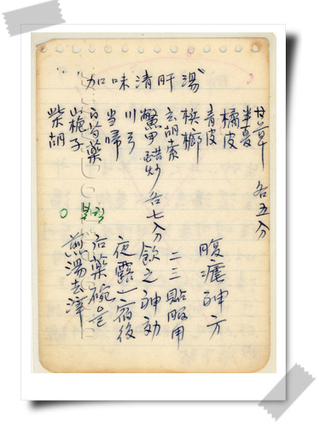 加味清肝湯
柴胡
山梔子
白芍藥
当帰
川弓
鱉甲醋炒 各七分
玄胡索
檳榔
青皮
橘皮
半夏
甘草 各五分
煎湯去滓
藥碗
夜露一宿後
飲之神効
二三貼服用
腹瘧神方